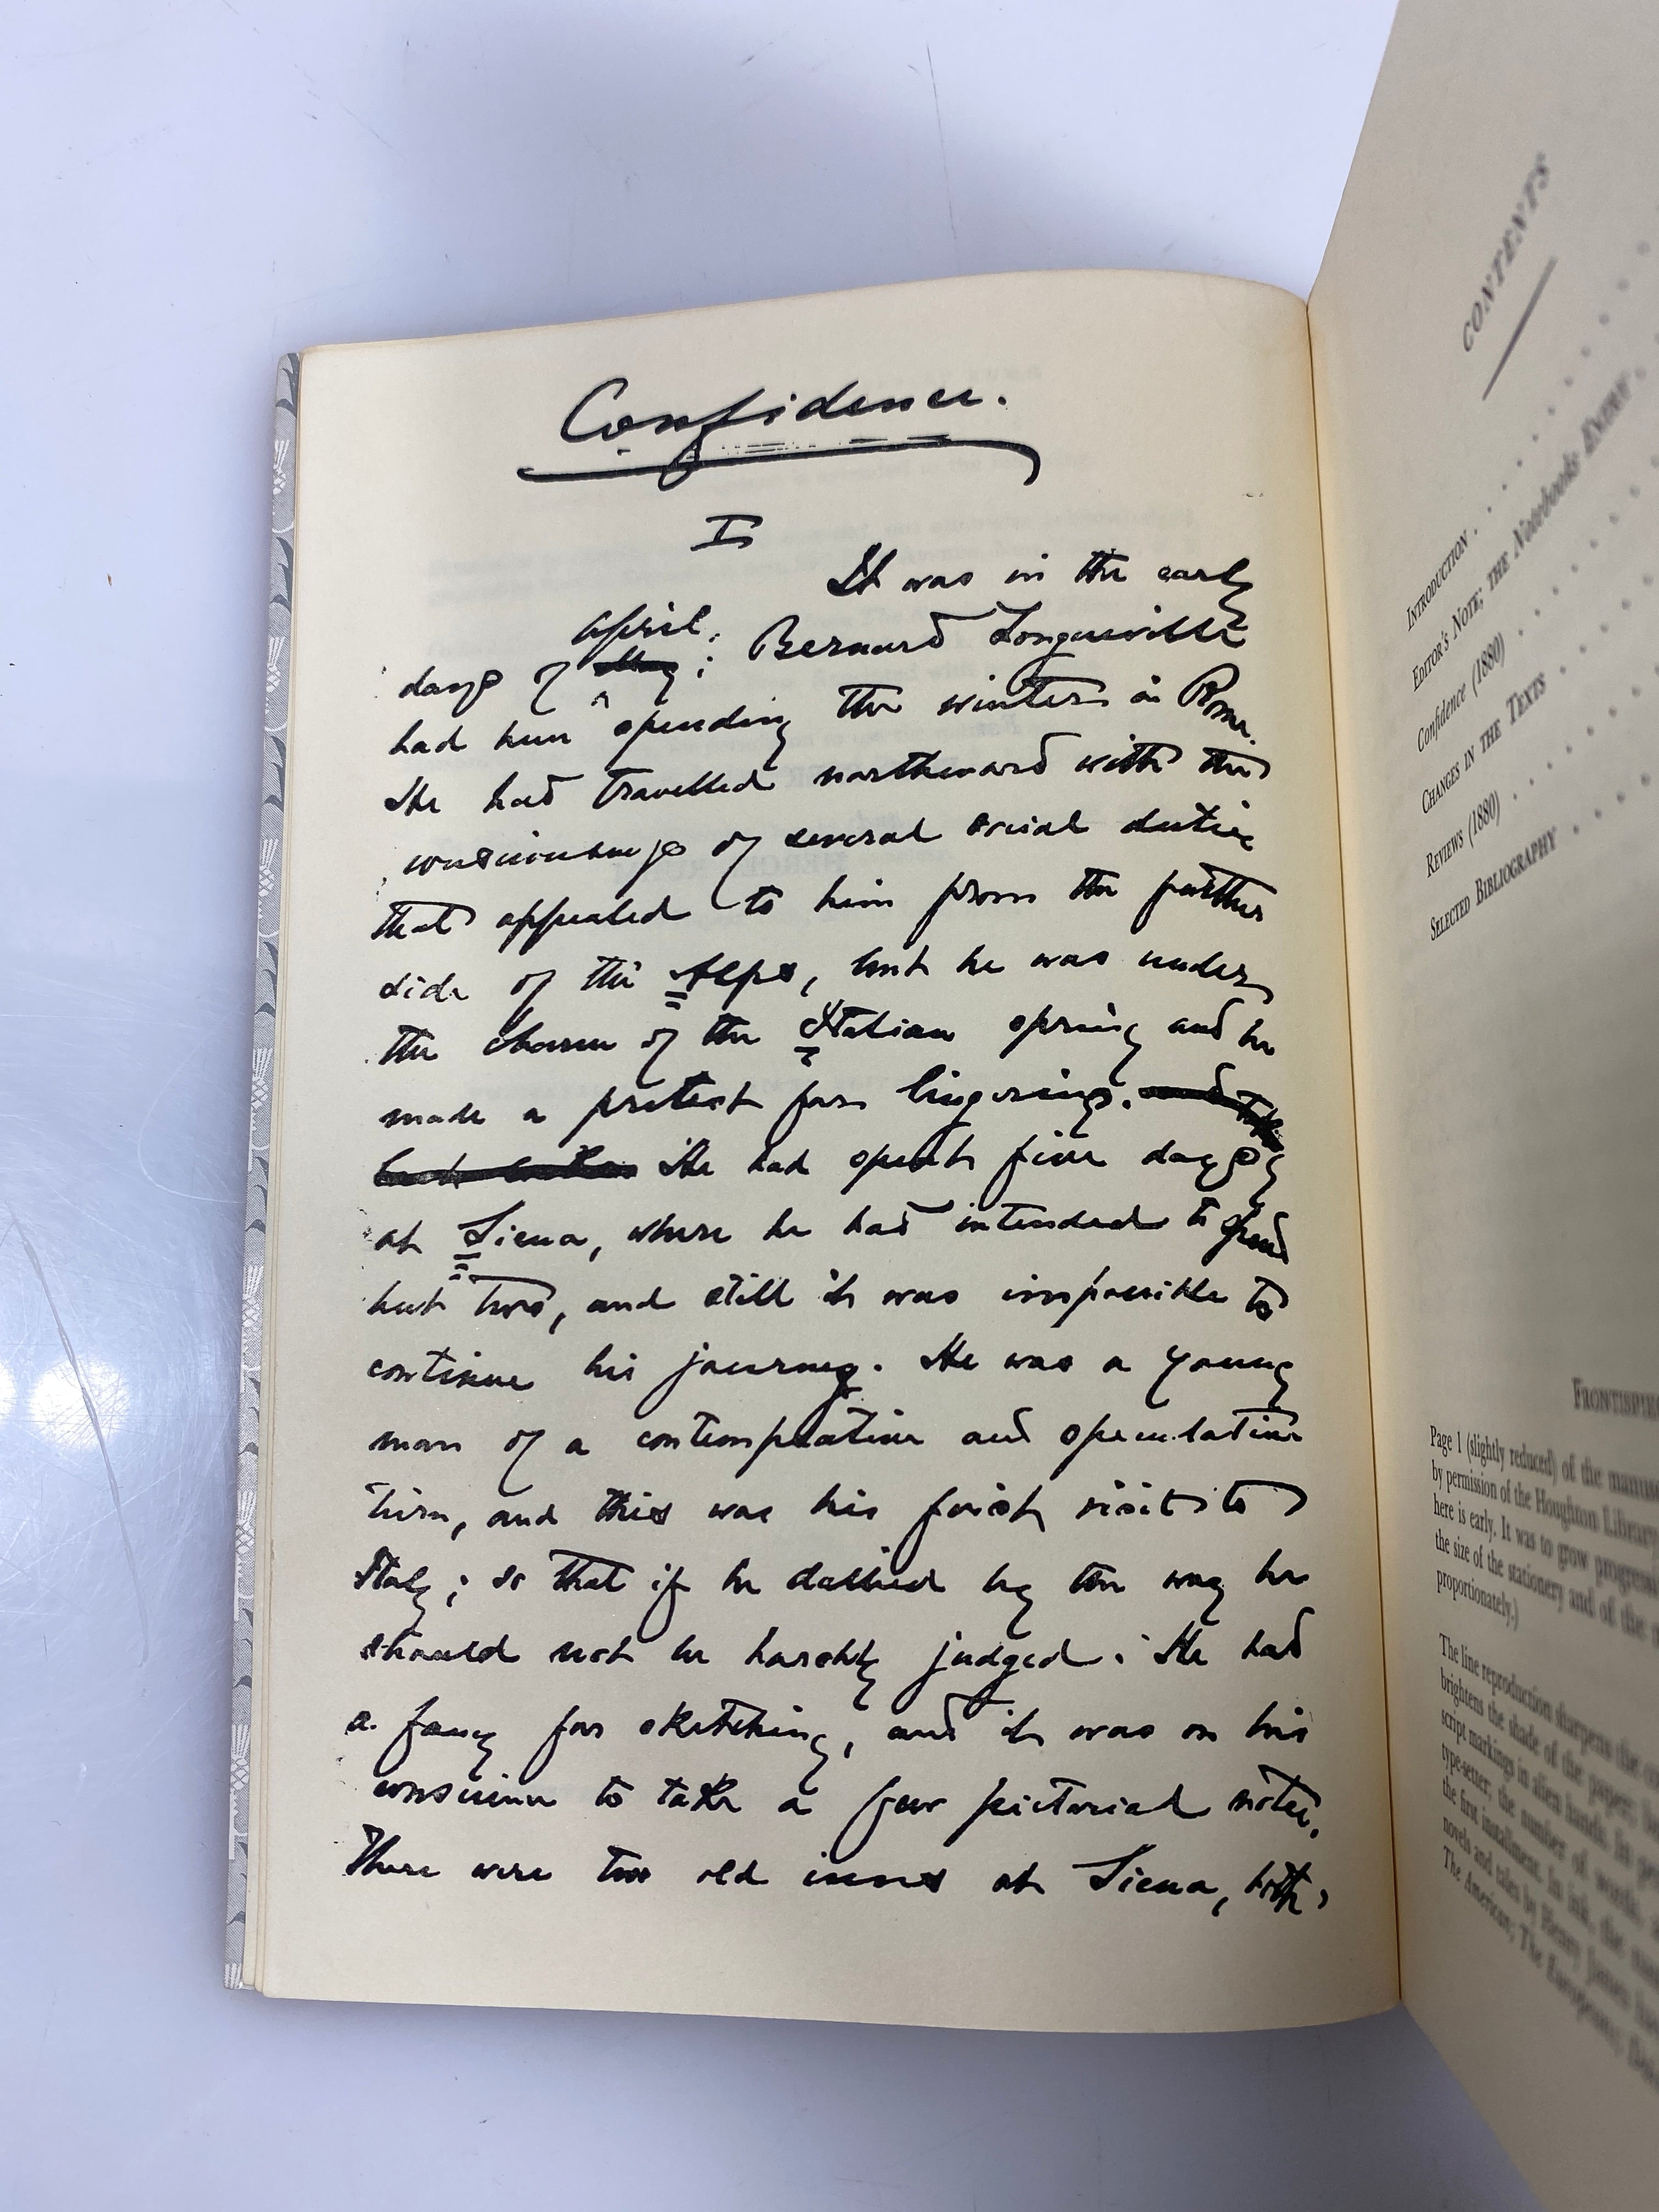 Confidence.
I
It was in the early
April.
days of May; Bernard Longueville
had been spending the winter in Rome.
He had travelled northward with the
consciousness of several social duties
that appealed to him from the further
side of the Alps, but he was under
the charm of the Italian spring and he
made a pretext for lingering. and
He had spent five days
at Siena, where he had intended to spend
but two, and still it was impossible to
continue his journey. He was a young
man of a contemplative and speculative
turn, and this was his first visit to
Italy; so that if he dallied by the way he
should not be harshly judged. He had
a fancy for sketching, and it was on his
conscience to take a few pictorial notes.
There were two old inns at Siena, both,
CONTENTS
INTRODUCTION
EDITOR'S NOTE; THE Notebooks ENTRY
Confidence (1880)
CHANGES IN THE TEXTS
REVIEWS (1880)
SELECTED BIBLIOGRAPHY
Page 1 (slightly reduced) of the
by permission of the Houghton Library
here is early. It was to grow
the size of the stationery and of the
proportionately.)
The line reproduction sharpens the
brightens the shade of the paper;
script markings in alien hands. In
type-setter; the number of words,
the first installment. In ink, the
novels and tales by Henry James
The American; The Europeans;